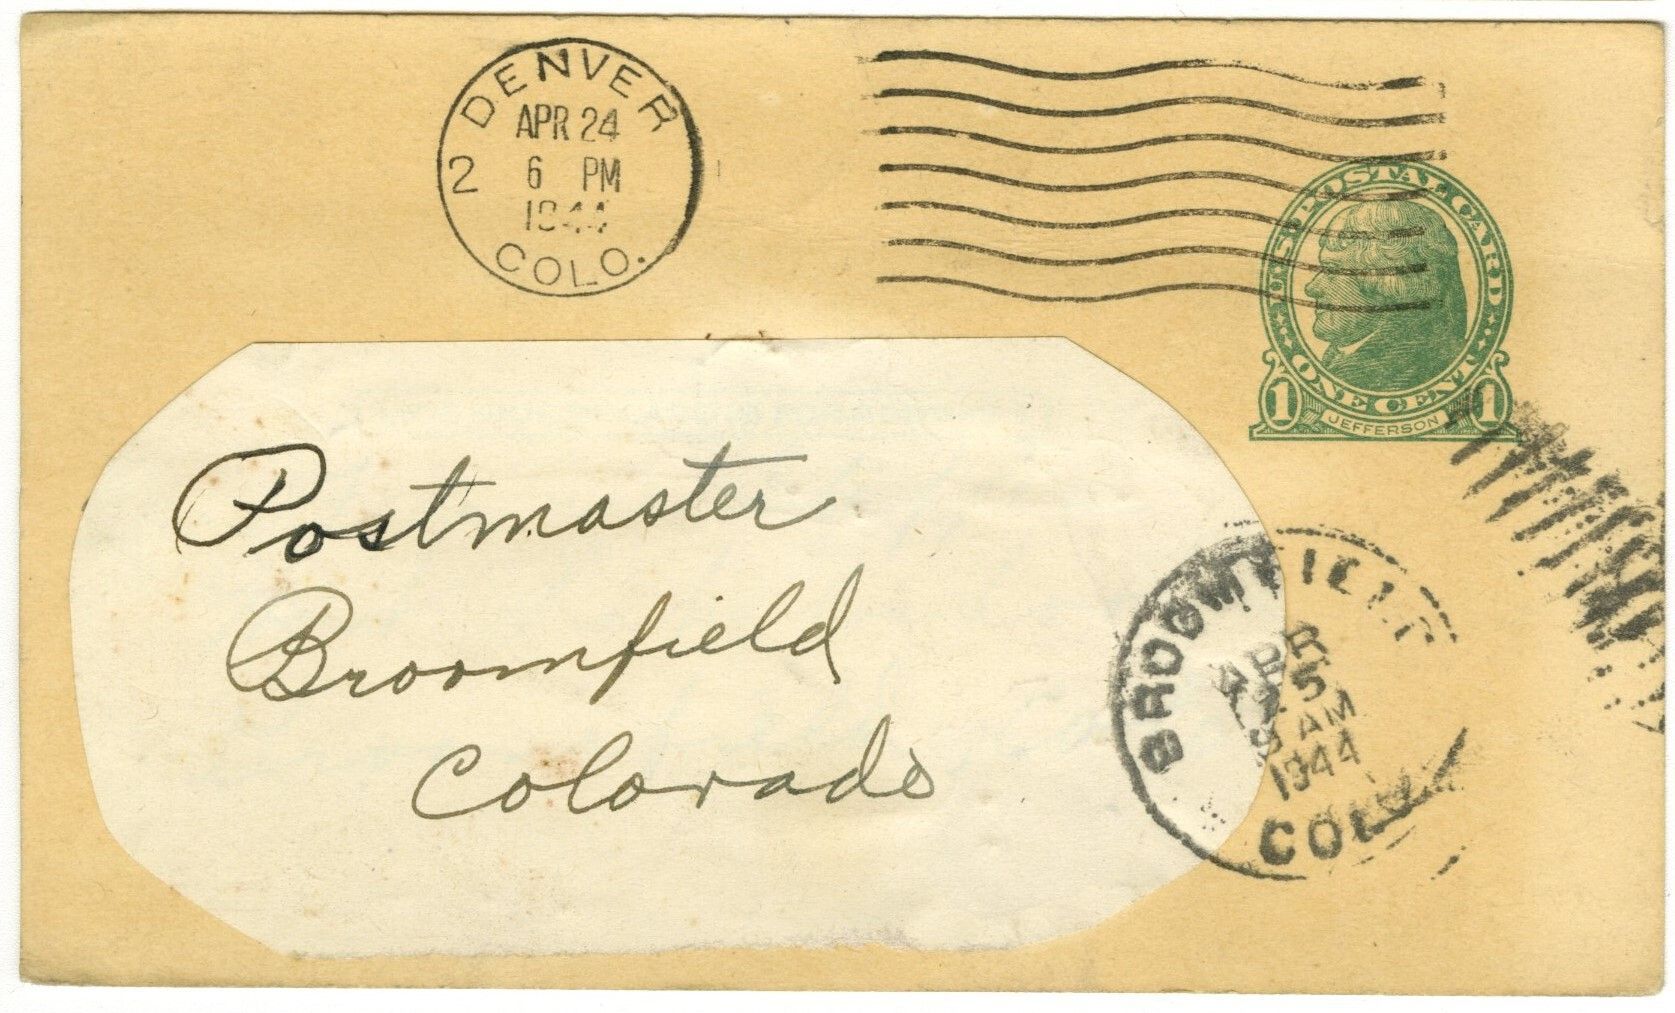 DENVER
APR 24
6 PM
1944
2
COLO.
U.S. POSTAL CARD
ONE CENT
1 JEFFERSON 1
Postmaster
Broomfield
Colorado
BROOMFIELD
APR
25
AM
1944
COLO.